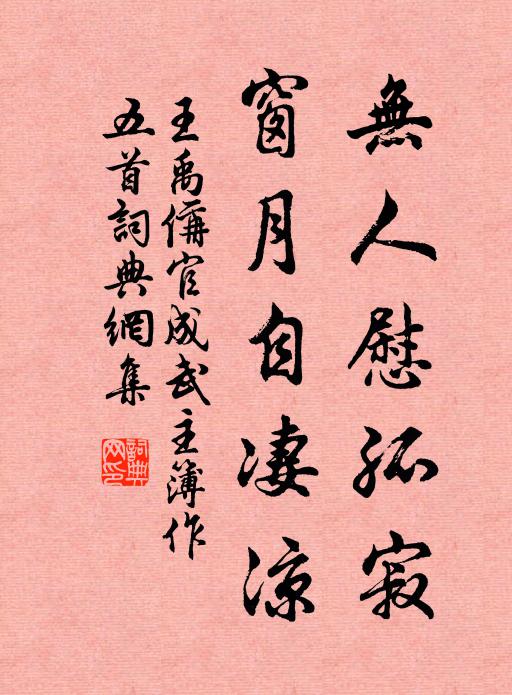 無人慰孤寂
窗月自凄涼
王禹偁官成武主簿作
五首詞典網集
詞典網印